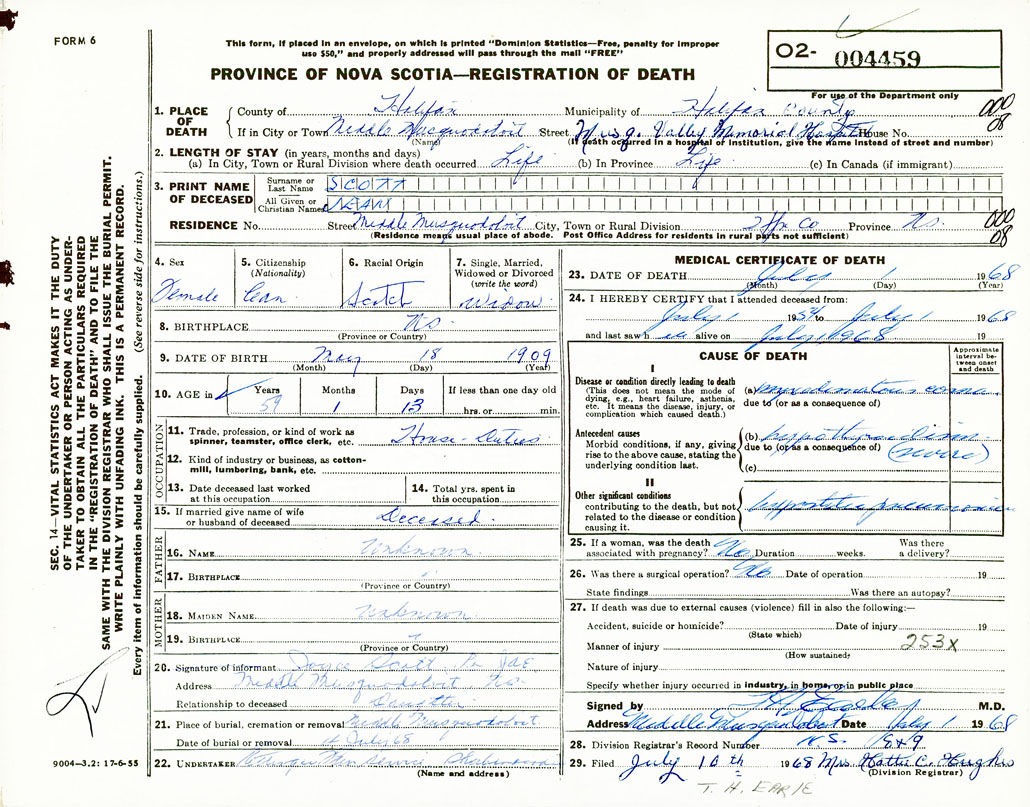 FORM 6
This form, if placed in an envelope, on which is printed "Dominion Statistics—Free, penalty for improper
use $50," and properly addressed will pass through the mail "FREE"
PROVINCE OF NOVA SCOTIA—REGISTRATION OF DEATH
02- 004459
For use of the Department only
000
08
1. PLACE OF DEATH
County of Halifax Municipality of Halifax County
If in City or Town Middle Musquodoboit Street Musq. Valley Memorial Hospital House No.
(Name) (If death occurred in a hospital or institution, give the name instead of street and number)
2. LENGTH OF STAY (in years, months and days)
(a) In City, Town or Rural Division where death occurred Life (b) In Province Life (c) In Canada (if immigrant)
3. PRINT NAME OF DECEASED
Surname or Last Name SCOTT
All Given or Christian Names JEAN
RESIDENCE No. Street Middle Musquodoboit City, Town or Rural Division Hfx Co Province N.S.
(Residence means usual place of abode. Post Office Address for residents in rural parts not sufficient)
000
08
4. Sex
Female
5. Citizenship (Nationality)
Can.
6. Racial Origin
Scotch
7. Single, Married, Widowed or Divorced (write the word)
Widow
8. BIRTHPLACE N.S.
(Province or Country)
9. DATE OF BIRTH May 18 1909
(Month) (Day) (Year)
10. AGE in Years 59 Months 1 Days 13 If less than one day old hrs. or min.
OCCUPATION
11. Trade, profession, or kind of work as spinner, teamster, office clerk, etc. House-Duties
12. Kind of industry or business, as cotton-mill, lumbering, bank, etc.
13. Date deceased last worked at this occupation
14. Total yrs. spent in this occupation
15. If married give name of wife or husband of deceased Deceased.
FATHER
16. NAME Unknown
17. BIRTHPLACE "
(Province or Country)
MOTHER
18. MAIDEN NAME Unknown
19. BIRTHPLACE "
(Province or Country)
20. Signature of informant Joyce Scott
Address Middle Musquodoboit N.S.
Relationship to deceased Daughter
21. Place of burial, cremation or removal Middle Musquodoboit
Date of burial or removal 4 July 68
22. UNDERTAKER
(Name and address)
9004-3.2: 17-6-55
MEDICAL CERTIFICATE OF DEATH
23. DATE OF DEATH July 1 1968
(Month) (Day) (Year)
24. I HEREBY CERTIFY that I attended deceased from:
July 1 1954 to July 1 1968
and last saw h alive on July 1 1968 19
CAUSE OF DEATH
Approximate interval between onset and death
I
Disease or condition directly leading to death
(This does not mean the mode of dying, e.g., heart failure, asthenia, etc. It means the disease, injury, or complication which caused death.)
(a) myxedematous coma
due to (or as a consequence of)
Antecedent causes
Morbid conditions, if any, giving rise to the above cause, stating the underlying condition last.
(b) hypothyroidism
due to (or as a consequence of) (severe)
(c)
II
Other significant conditions
contributing to the death, but not related to the disease or condition causing it.
hypostatic pneumonia
25. If a woman, was the death associated with pregnancy? No Duration weeks. Was there a delivery?
26. Was there a surgical operation? No Date of operation 19
State findings Was there an autopsy?
27. If death was due to external causes (violence) fill in also the following:—
Accident, suicide or homicide? Date of injury 19
(State which)
Manner of injury 253X
(How sustained)
Nature of injury
Specify whether injury occurred in industry, in home, or in public place
Signed by M.D.
Address Middle Musquodoboit Date July 1 1968
28. Division Registrar's Record Number
29. Filed July 10th 1968 Mrs. Hattie C.
(Division Registrar)
T. H. EARLE
SEC. 14—VITAL STATISTICS ACT MAKES IT THE DUTY
OF THE UNDERTAKER OR PERSON ACTING AS UNDER-
TAKER TO OBTAIN ALL THE PARTICULARS REQUIRED
IN THE "REGISTRATION OF DEATH" AND TO FILE THE
SAME WITH THE DIVISION REGISTRAR WHO SHALL ISSUE THE BURIAL PERMIT.
WRITE PLAINLY WITH UNFADING INK. THIS IS A PERMANENT RECORD.
Every item of information should be carefully supplied. (See reverse side for instructions.)